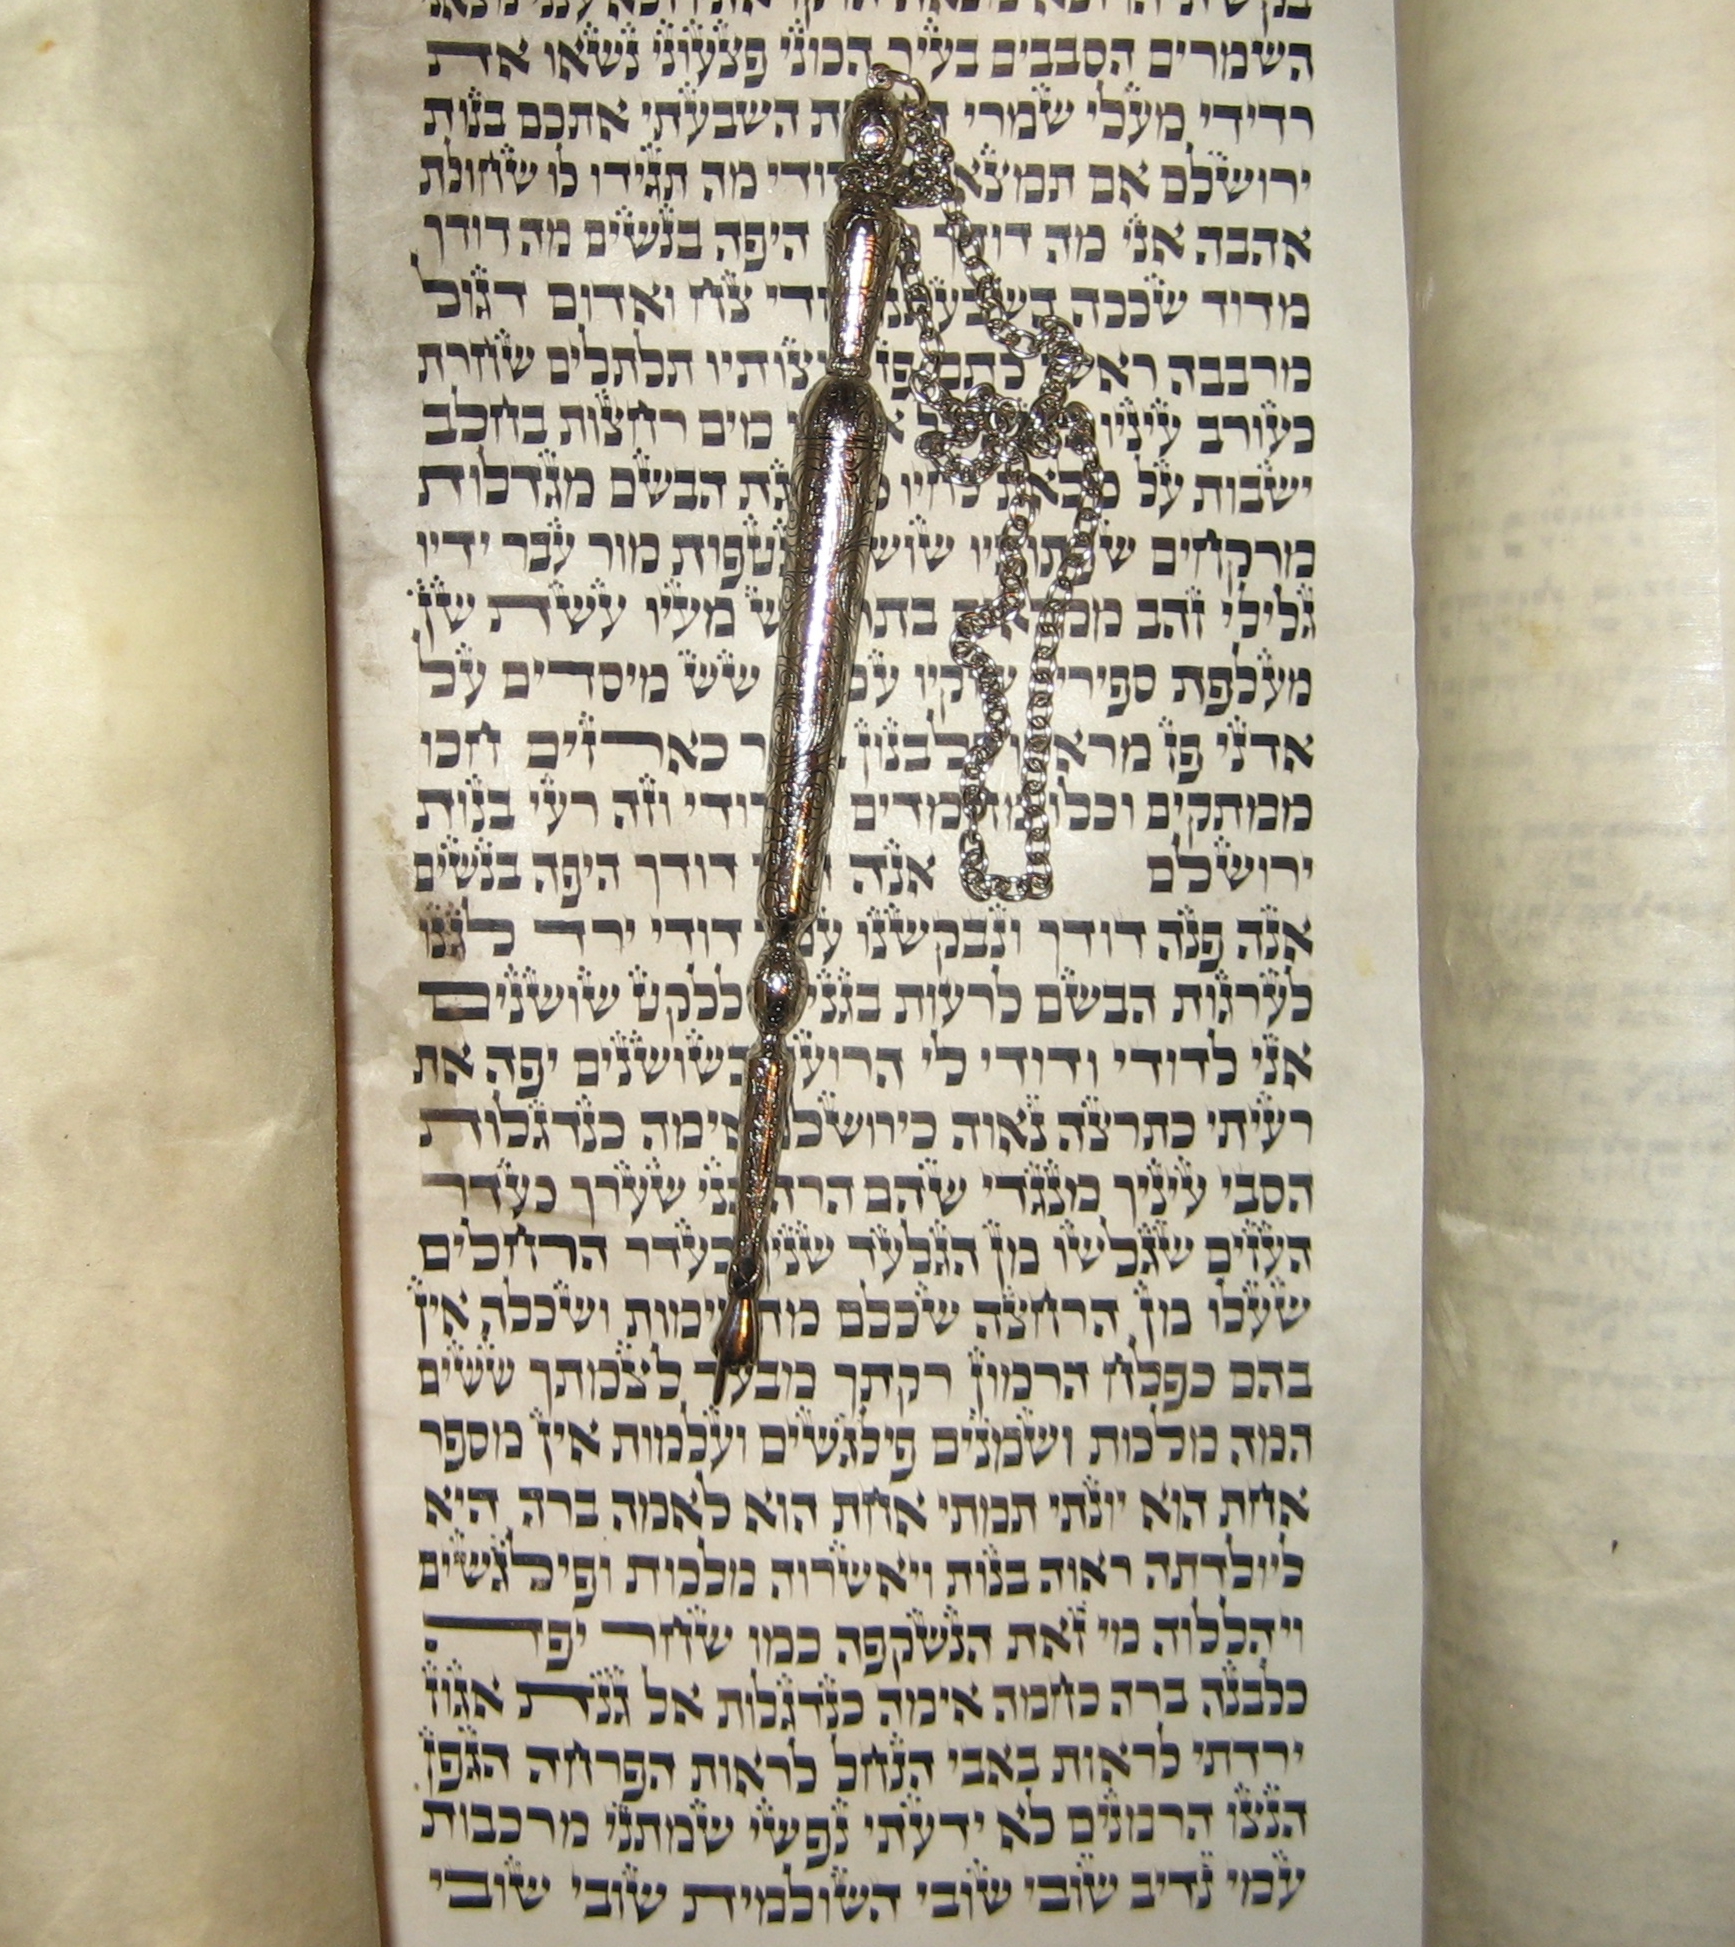 השמרים הסבבים בעיר הכוני פצעוני נשאו את
רדידי מעלי שמרי השבעתי אתכם בנות
ירושלם אם תמצאו דודי מה תגידו לו שחולת
אהבה אני מה דודך היפה בנשים מה דודך
מדוד שככה השבעתנו דודי צח ואדום דגול
מרבבה ראשו כתם פז קוצותיו תלתלים שחרת
כעורב עיניו מים רחצות בחלב
ישבות על מלאת לחיו הבשם מגדלות
מרקחים שפתותיו נטפות מור עבר ידיו
גלילי זהב ממלאים מעיו עשת שן
מעלפת ספירים שוקיו שש מיסדים על
אדני פז מראהו כלבנון כארזים חכו
ממתקים וכלו מחמדים דודי וזה רעי בנות
ירושלם אנה דודך היפה בנשים
אנה פנה דודך ונבקשנו עמך דודי ירד לגנו
לערגות הבשם לרעות בגנים וללקט שושנים
אני לדודי ודודי לי הרועה בשושנים יפה את
רעיתי כתרצה נאוה כירושלם אימה כנדגלות
הסבי עיניך מנגדי שהם הרהבני שערך כעדר
העזים שגלשו מן הגלעד שניך כעדר הרחלים
שעלו מן הרחצה שכלם מתאימות ושכלה אין
בהם כפלח הרמון רקתך מבעד לצמתך ששים
המה מלכות ושמנים פילגשים ועלמות אין מספר
אחת הוא יונתי תמתי אחת הוא לאמה ברה היא
ליולדתה ראוה בנות ויאשרוה מלכות ופילגשים
ויהללוה מי זאת הנשקפה כמו שחר יפה
כלבנה ברה כחמה אימה כנדגלות אל גנת אגוז
ירדתי לראות באבי הנחל לראות הפרחה הגפן
הנצו הרמנים לא ידעתי נפשי שמתני מרכבות
עמי נדיב שובי שובי השולמית שובי שובי